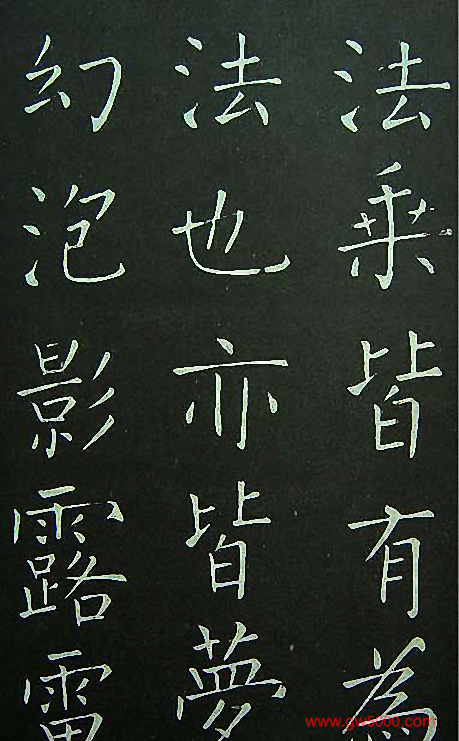 法乘皆有為
法也亦皆夢
幻泡影露電
www.gw5000.com